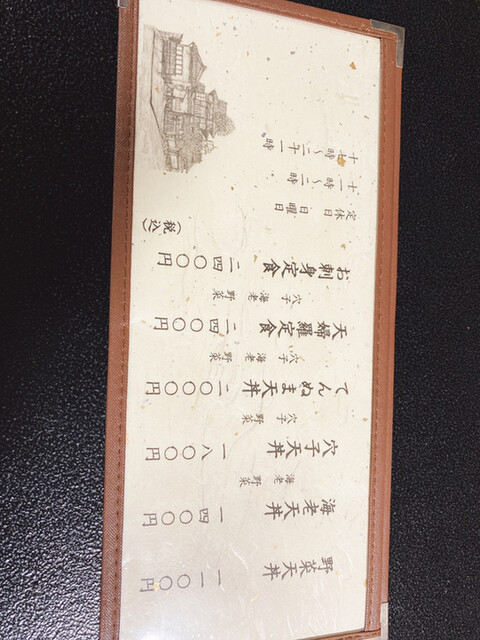 野菜天丼 一一〇〇円
海老天丼 一四〇〇円
海老 野菜
穴子天丼 一八〇〇円
穴子 野菜
てんぬま天丼 二〇〇〇円
穴子 海老 野菜
天婦羅定食 二四〇〇円
穴子 海老 野菜
お刺身定食 二四〇〇円
(税込)
定休日 日曜日
十一時〜二時
十七時〜二十一時